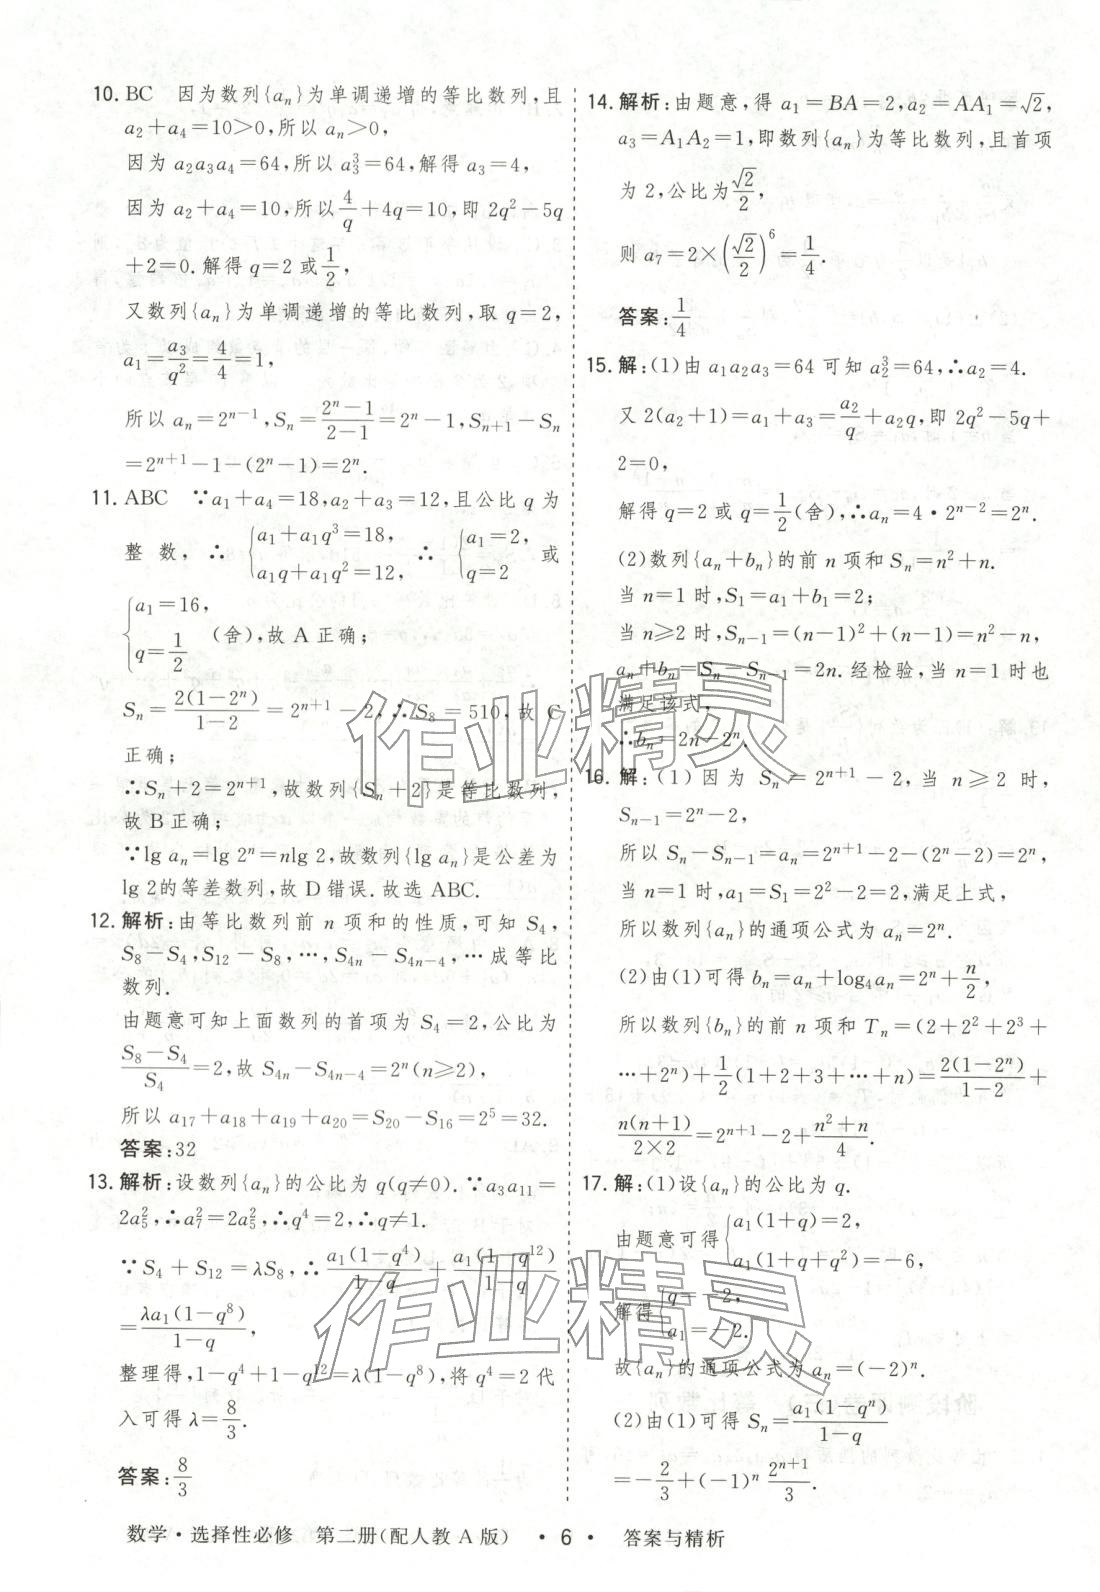 10. BC　因为数列{aₙ}为单调递增的等比数列,且
a₂+a₄=10>0,所以 aₙ>0,
因为 a₂a₃a₄=64,所以 a₃³=64,解得 a₃=4,
因为 a₂+a₄=10,所以 4/q+4q=10,即 2q²-5q
+2=0.解得 q=2 或 1/2,
又数列{aₙ}为单调递增的等比数列,取 q=2,
a₁=a₃/q²=4/4=1,
所以 aₙ=2ⁿ⁻¹,Sₙ=(2ⁿ-1)/(2-1)=2ⁿ-1,Sₙ₊₁-Sₙ
=2ⁿ⁺¹-1-(2ⁿ-1)=2ⁿ.
11. ABC　∵a₁+a₄=18,a₂+a₃=12,且公比 q 为
整数,∴ {a₁+a₁q³=18, a₁q+a₁q²=12, ∴ {a₁=2, q=2 或
{a₁=16, q=1/2 (舍),故 A 正确;
Sₙ=2(1-2ⁿ)/(1-2)=2ⁿ⁺¹-2,∴S₈=510,故 C
正确;
∴Sₙ+2=2ⁿ⁺¹,故数列{Sₙ+2}是等比数列,
故 B 正确;
∵lg aₙ=lg 2ⁿ=nlg 2,故数列{lg aₙ}是公差为
lg 2的等差数列,故 D 错误.故选 ABC.
12. 解析:由等比数列前 n 项和的性质,可知 S₄,
S₈-S₄,S₁₂-S₈,…,S₄ₙ-S₄ₙ₋₄,…成等比
数列.
由题意可知上面数列的首项为 S₄=2,公比为
(S₈-S₄)/S₄=2,故 S₄ₙ-S₄ₙ₋₄=2ⁿ(n≥2),
所以 a₁₇+a₁₈+a₁₉+a₂₀=S₂₀-S₁₆=2⁵=32.
答案:32
13. 解析:设数列{aₙ}的公比为 q(q≠0).∵a₃a₁₁=
2a₅²,∴a₇²=2a₅²,∴q⁴=2,∴q≠1.
∵S₄+S₁₂=λS₈,∴a₁(1-q⁴)/(1-q)+a₁(1-q¹²)/(1-q)
=λa₁(1-q⁸)/(1-q),
整理得,1-q⁴+1-q¹²=λ(1-q⁸),将 q⁴=2 代
入可得 λ=8/3.
答案:8/3
14. 解析:由题意,得 a₁=BA=2,a₂=AA₁=√2,
a₃=A₁A₂=1,即数列{aₙ}为等比数列,且首项
为 2,公比为√2/2,
则 a₇=2×(√2/2)⁶=1/4.
答案:1/4
15. 解:(1)由 a₁a₂a₃=64 可知 a₂³=64,∴a₂=4.
又 2(a₂+1)=a₁+a₃=a₂/q+a₂q,即 2q²-5q+
2=0,
解得 q=2 或 q=1/2(舍),∴aₙ=4·2ⁿ⁻²=2ⁿ.
(2)数列{aₙ+bₙ}的前 n 项和 Sₙ=n²+n.
当 n=1 时,S₁=a₁+b₁=2;
当 n≥2 时,Sₙ₋₁=(n-1)²+(n-1)=n²-n,
aₙ+bₙ=Sₙ-Sₙ₋₁=2n.经检验,当 n=1 时也
满足该式,
∴bₙ=2n-2ⁿ.
16. 解:(1)因为 Sₙ=2ⁿ⁺¹-2,当 n≥2 时,
Sₙ₋₁=2ⁿ-2,
所以 Sₙ-Sₙ₋₁=aₙ=2ⁿ⁺¹-2-(2ⁿ-2)=2ⁿ,
当 n=1 时,a₁=S₁=2²-2=2,满足上式,
所以数列{aₙ}的通项公式为 aₙ=2ⁿ.
(2)由(1)可得 bₙ=aₙ+log₄aₙ=2ⁿ+n/2,
所以数列{bₙ}的前 n 项和 Tₙ=(2+2²+2³+
…+2ⁿ)+1/2(1+2+3+…+n)=2(1-2ⁿ)/(1-2)+
n(n+1)/(2×2)=2ⁿ⁺¹-2+(n²+n)/4.
17. 解:(1)设{aₙ}的公比为 q.
由题意可得{a₁(1+q)=2, a₁(1+q+q²)=-6,
解得{q=-2, a₁=-2.
故{aₙ}的通项公式为 aₙ=(-2)ⁿ.
(2)由(1)可得 Sₙ=a₁(1-qⁿ)/(1-q)
=-2/3+(-1)ⁿ 2ⁿ⁺¹/3.
作业精灵
作业精灵
数学·选择性必修　第二册(配人教 A 版)　·6·　答案与精析